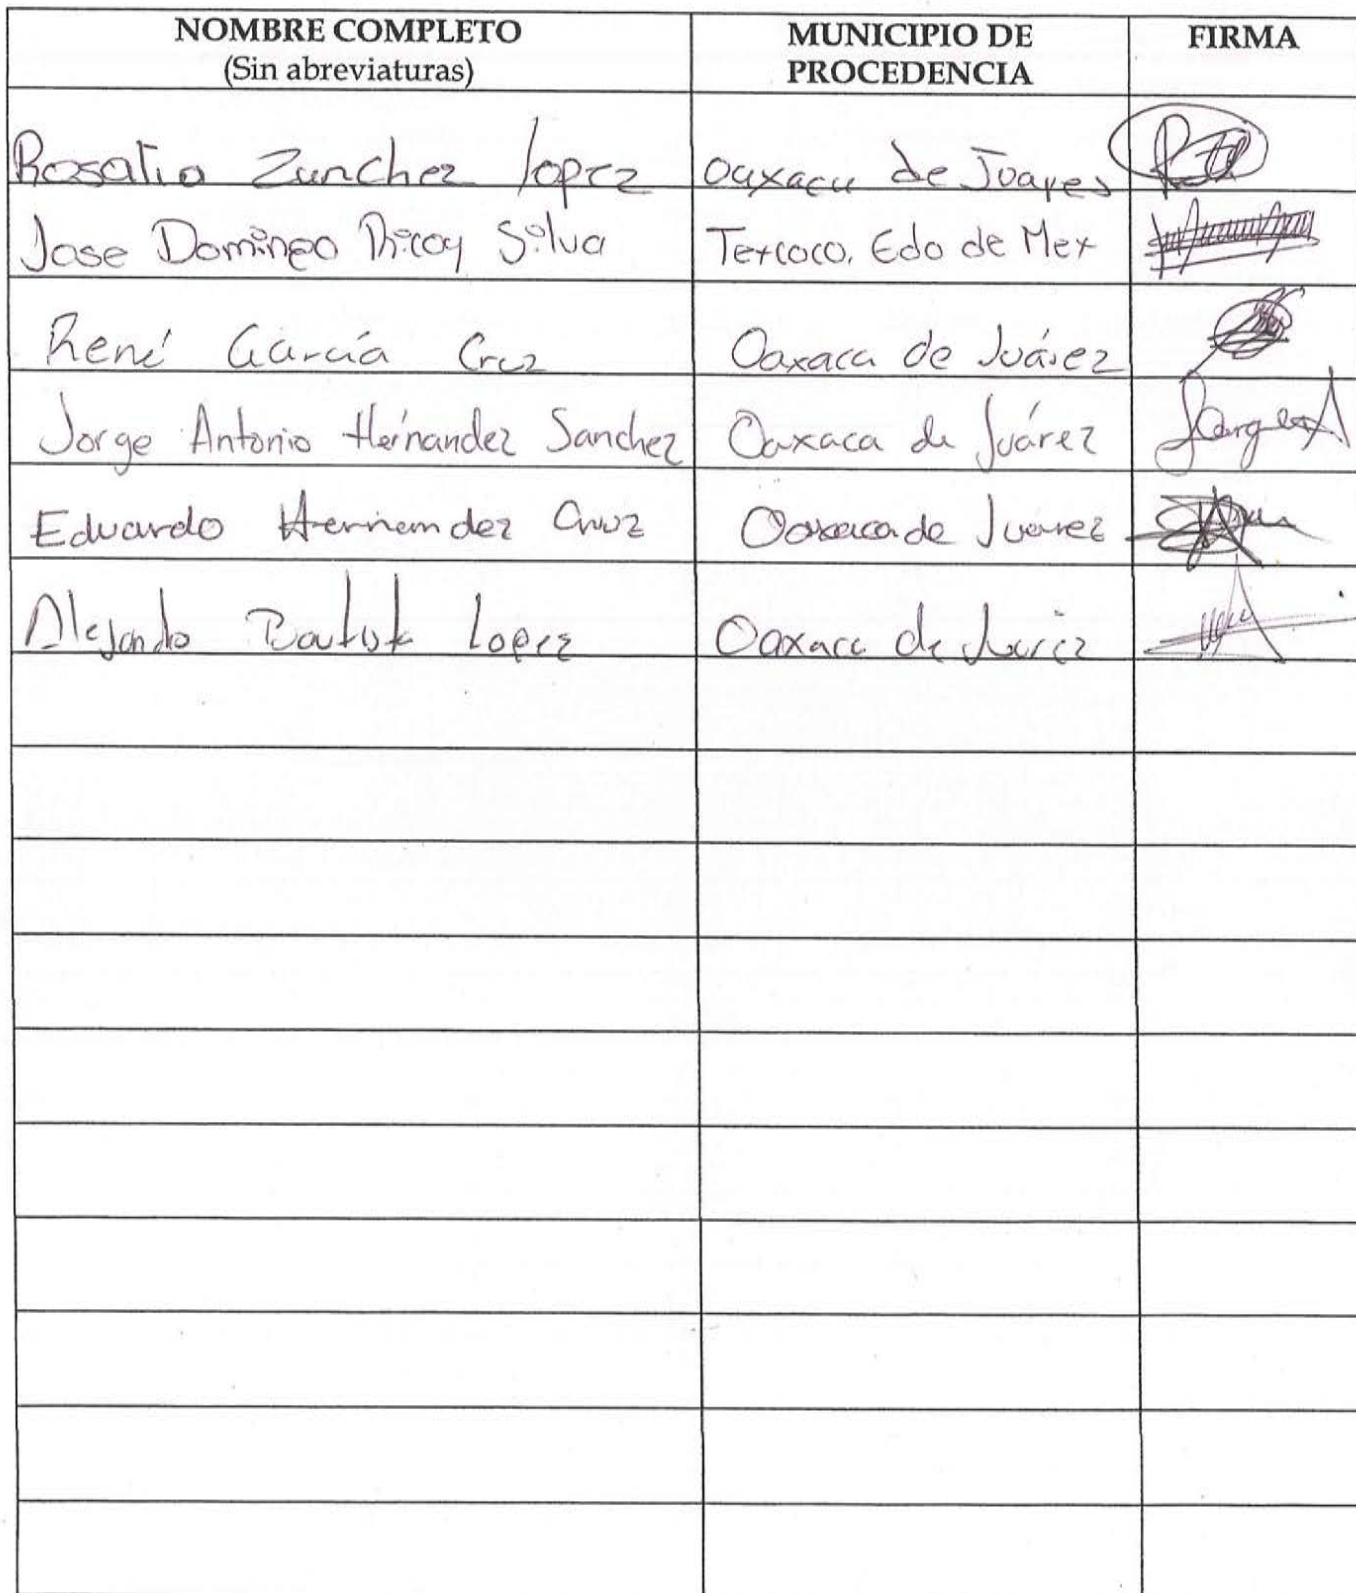 NOMBRE COMPLETO
(Sin abreviaturas)
MUNICIPIO DE
PROCEDENCIA
FIRMA
Rosalio Zanchez lopez oaxaca de Juares
Jose Domingo Ricoy Silva Texcoco, Edo de Mex
René García Cruz Oaxaca de Juárez
Jorge Antonio Hernandez Sanchez Oaxaca de Juárez
Eduardo Hernandez Cruz Oaxaca de Juarez
Alejandro Bautista Lopez Oaxaca de Juarez